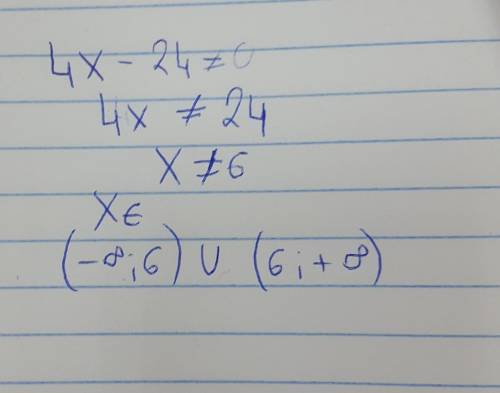 4x - 24 ≠ 0
4x ≠ 24
x ≠ 6
x ∈
(-∞; 6) ∪ (6; +∞)